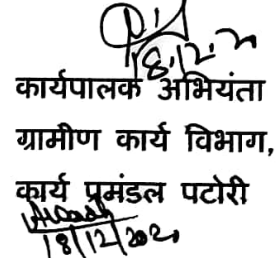 कार्यपालक अभियंता
ग्रामीण कार्य विभाग,
कार्य प्रमंडल पटोरी
18/12/2020